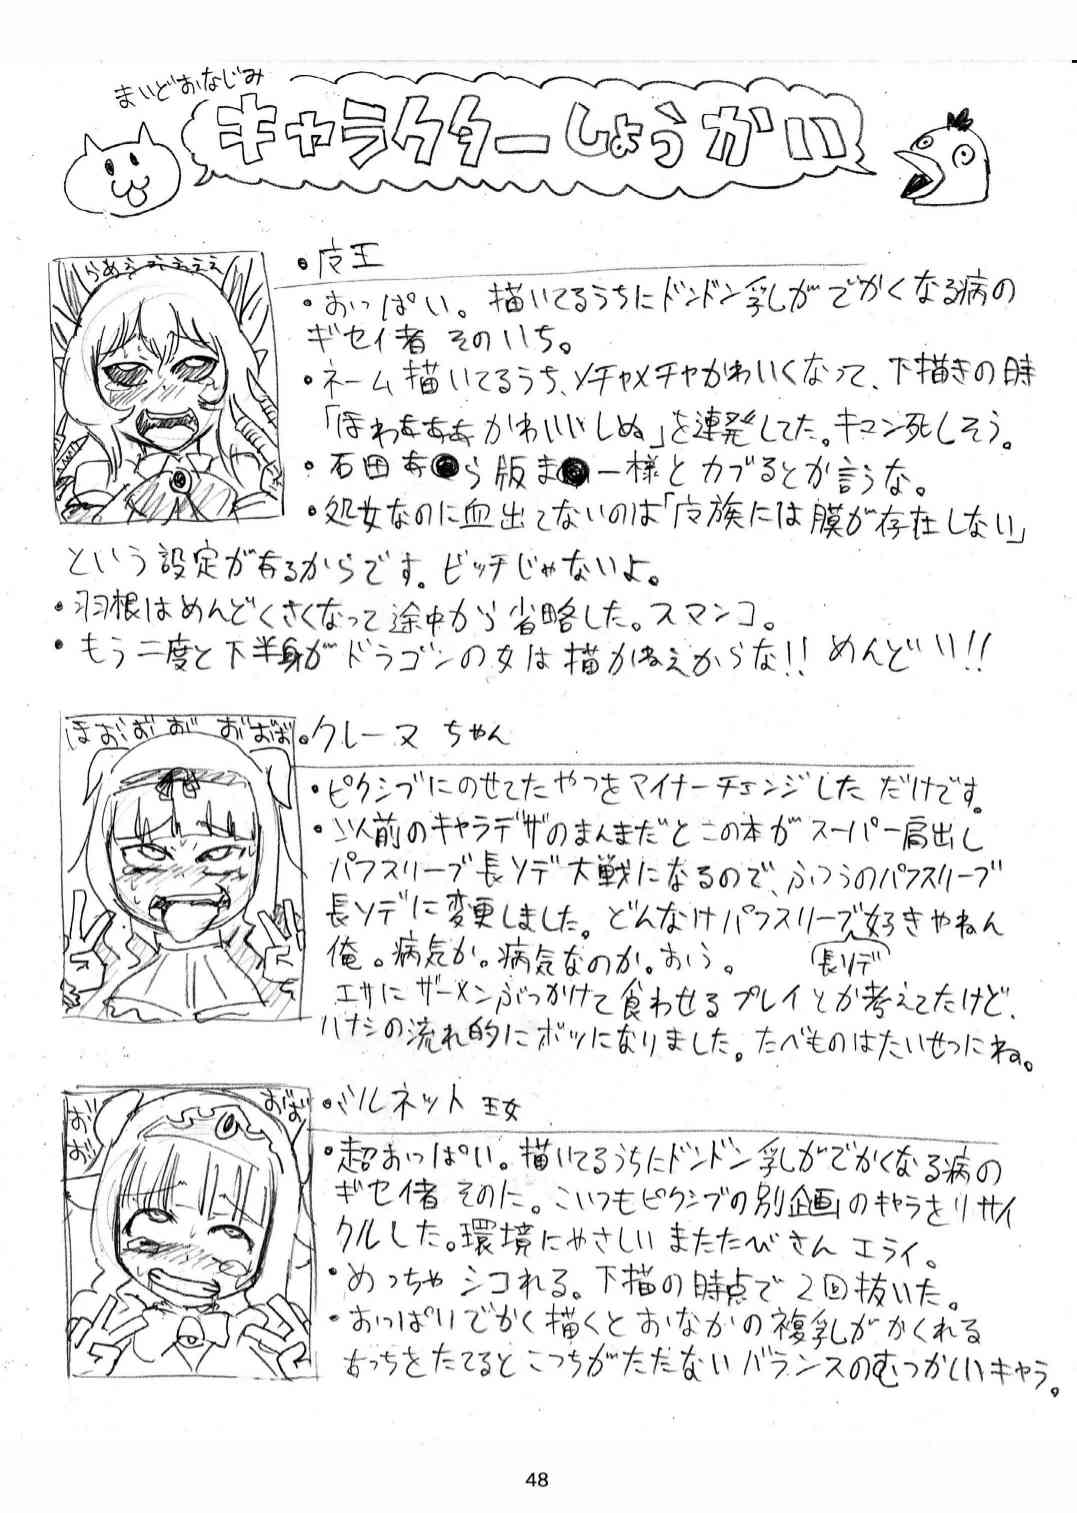 まいどおなじみ
キャラクターしょうかい
らめえええええ
・皮王
・おっぱい。描いてるうちにドンドン乳しがでかくなる病の
ギセイ者 そのいち。
・ネーム描いてるうち、メチャメチャかわいくなって、下描きの時
「ほわぁぁぁかわいいしぬ」を連発してた。キュン死しそう。
・石田あ●ら版ま●ー様とカブるとか言うな。
・処女なのに血出てないのは「皮族には膜が存在しない」
という設定が有るからです。ビッチじゃないよ。
・羽根はめんどくさくなって途中から省略した。スマンコ。
・もう二度と下半身がドラゴンの女は描かねえからな!! めんどい!!
ほお゙お゙お゙ お゙お゙お゙
・クレーヌ ちゃん
・ピクシブにのせてたやつをマイナーチェンジした だけです。
・以前のキャラデザのまんまだとこの本がスーパー肩出し
パフスリーブ長ソデ大戦になるので、ふつうのパフスリーブ
長ソデに変更しました。どんなけパフスリーブ好きやねん
長ソデ
俺。病気か。病気なのか。おい。
エサにザーメンぶっかけて食わせるプレイとか考えてたけど、
ハナシの流れ的にボツになりました。たべものはたいせつにね。
お゙お゙
お゙お゙
・バルネット 王女
・超おっぱい。描いてるうちにドンドン乳しがでかくなる病の
ギセイ者 そのに。こいつもピクシブの別企画のキャラをリサイ
クルした。環境にやさしい またたびさん エライ。
・めっちゃ シコれる。下描の時点で2回抜いた。
・おっぱいでかく描くとおなかの複乳がかくれる
あっちをたてるとこっちがたたないバランスのむつかしいキャラ。
48